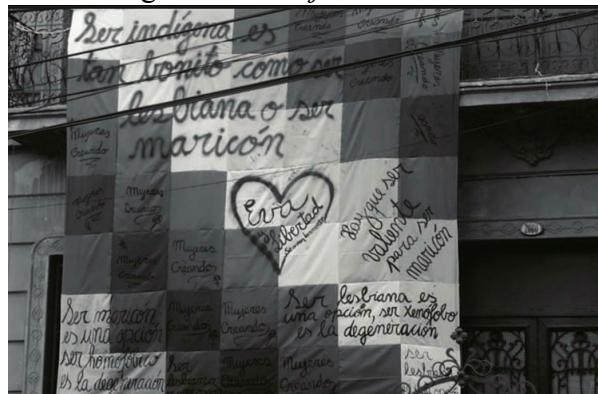 Ser indígena es
tan bonito como ser
lesbiana o ser
maricón
Mujeres
Creando
Mujeres
Creando
Mujeres
Creando
Mujeres
Creando
Mujeres
Creando
Eva
libertad
Hay que ser
valiente
para ser
maricón
Mujeres
Creando
Mujeres
Creando
Ser maricón
es una opción
ser homofóbico
es la degeneración
Mujeres
Creando
Mujeres
Creando
Ser lesbiana es
una opción, ser xenófobo
es la degeneración
Ser
lesbiana
Mujeres
Creando
Mujeres
Creando
ser